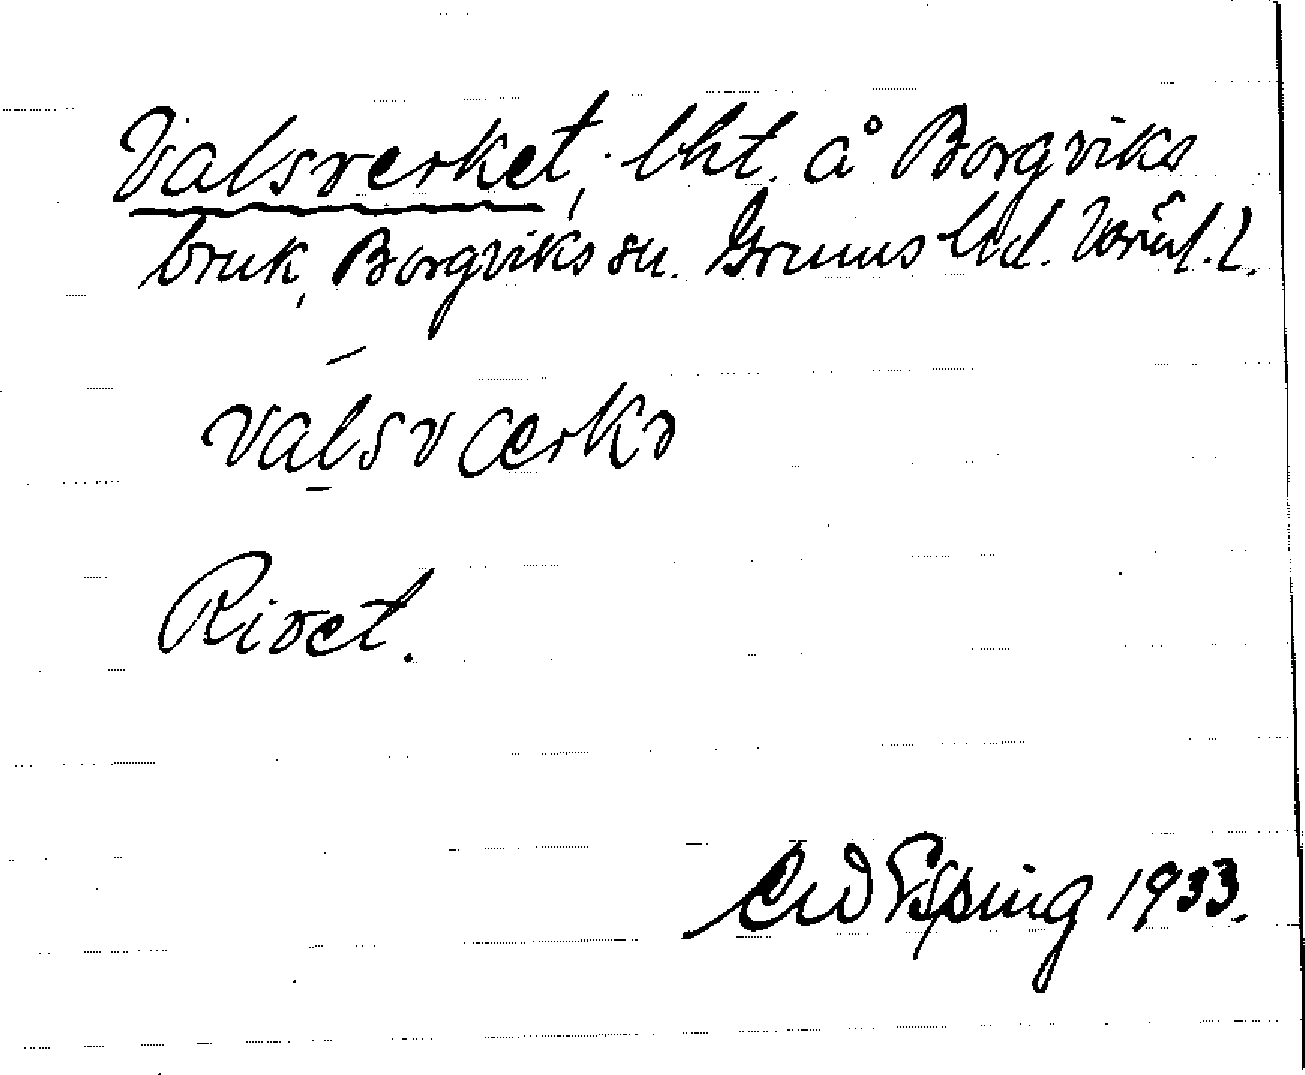 Valsverket, bht. å Borgviks
bruk, Borgviks sn. Grums hd. Värml. l.
valsværkə
Rivet.
Esping 1933.